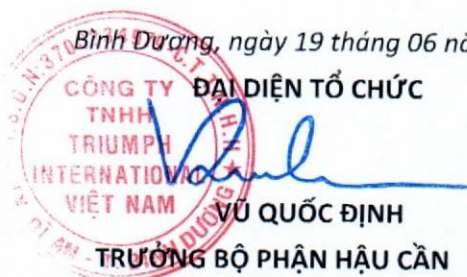 Bình Dương, ngày 19 tháng 06
ĐẠI DIỆN TỔ CHỨC
CÔNG TY
TNHH
TRIUMPH
INTERNATIONAL
VIỆT NAM
VŨ QUỐC ĐỊNH
TRƯỞNG BỘ PHẬN HẬU CẦN